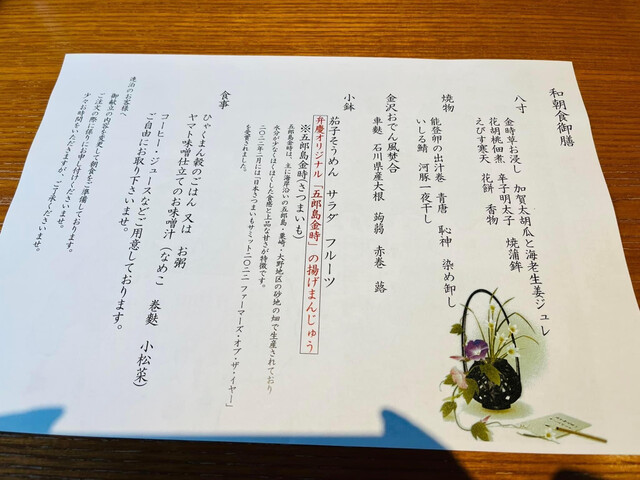 和朝食御膳
八寸
金時草お浸し 加賀太胡瓜と海老生姜ジュレ
花胡桃佃煮 辛子明太子 焼蒲鉾
えびす寒天 花餅 香物
焼物
能登卵の出汁巻 青唐 恥神 染め卸し
いしる鯖 河豚一夜干し
金沢おでん風焚合
車麩 石川県産大根 蒟蒻 赤巻 蕗
小鉢
茄子そうめん サラダ フルーツ
弁慶オリジナル「五郎島金時」の揚げまんじゅう
※五郎島金時(さつまいも)
五郎島金時は、主に海岸沿いの五郎島・粟崎・大野地区の砂地の畑で生産されており
水分が少なくほくほくした食感と上品な甘さが特徴です。
二〇二二年二月には「日本さつまいもサミット二〇二二 ファーマーズ・オブ・ザ・イヤー」
を受賞されました。
食事
ひゃくまん穀のごはん 又は お粥
ヤマト味噌仕立てのお味噌汁(なめこ 巻麩 小松菜)
コーヒー・ジュースなどご用意しております。
ご自由にお取り下さいませ。
連泊のお客様へ
御献立の内容を変更して朝食をご準備しております。
ご注文の際に係りにお申し付けくださいませ。
少々お時間をいただきますが、ご了承くださいませ。